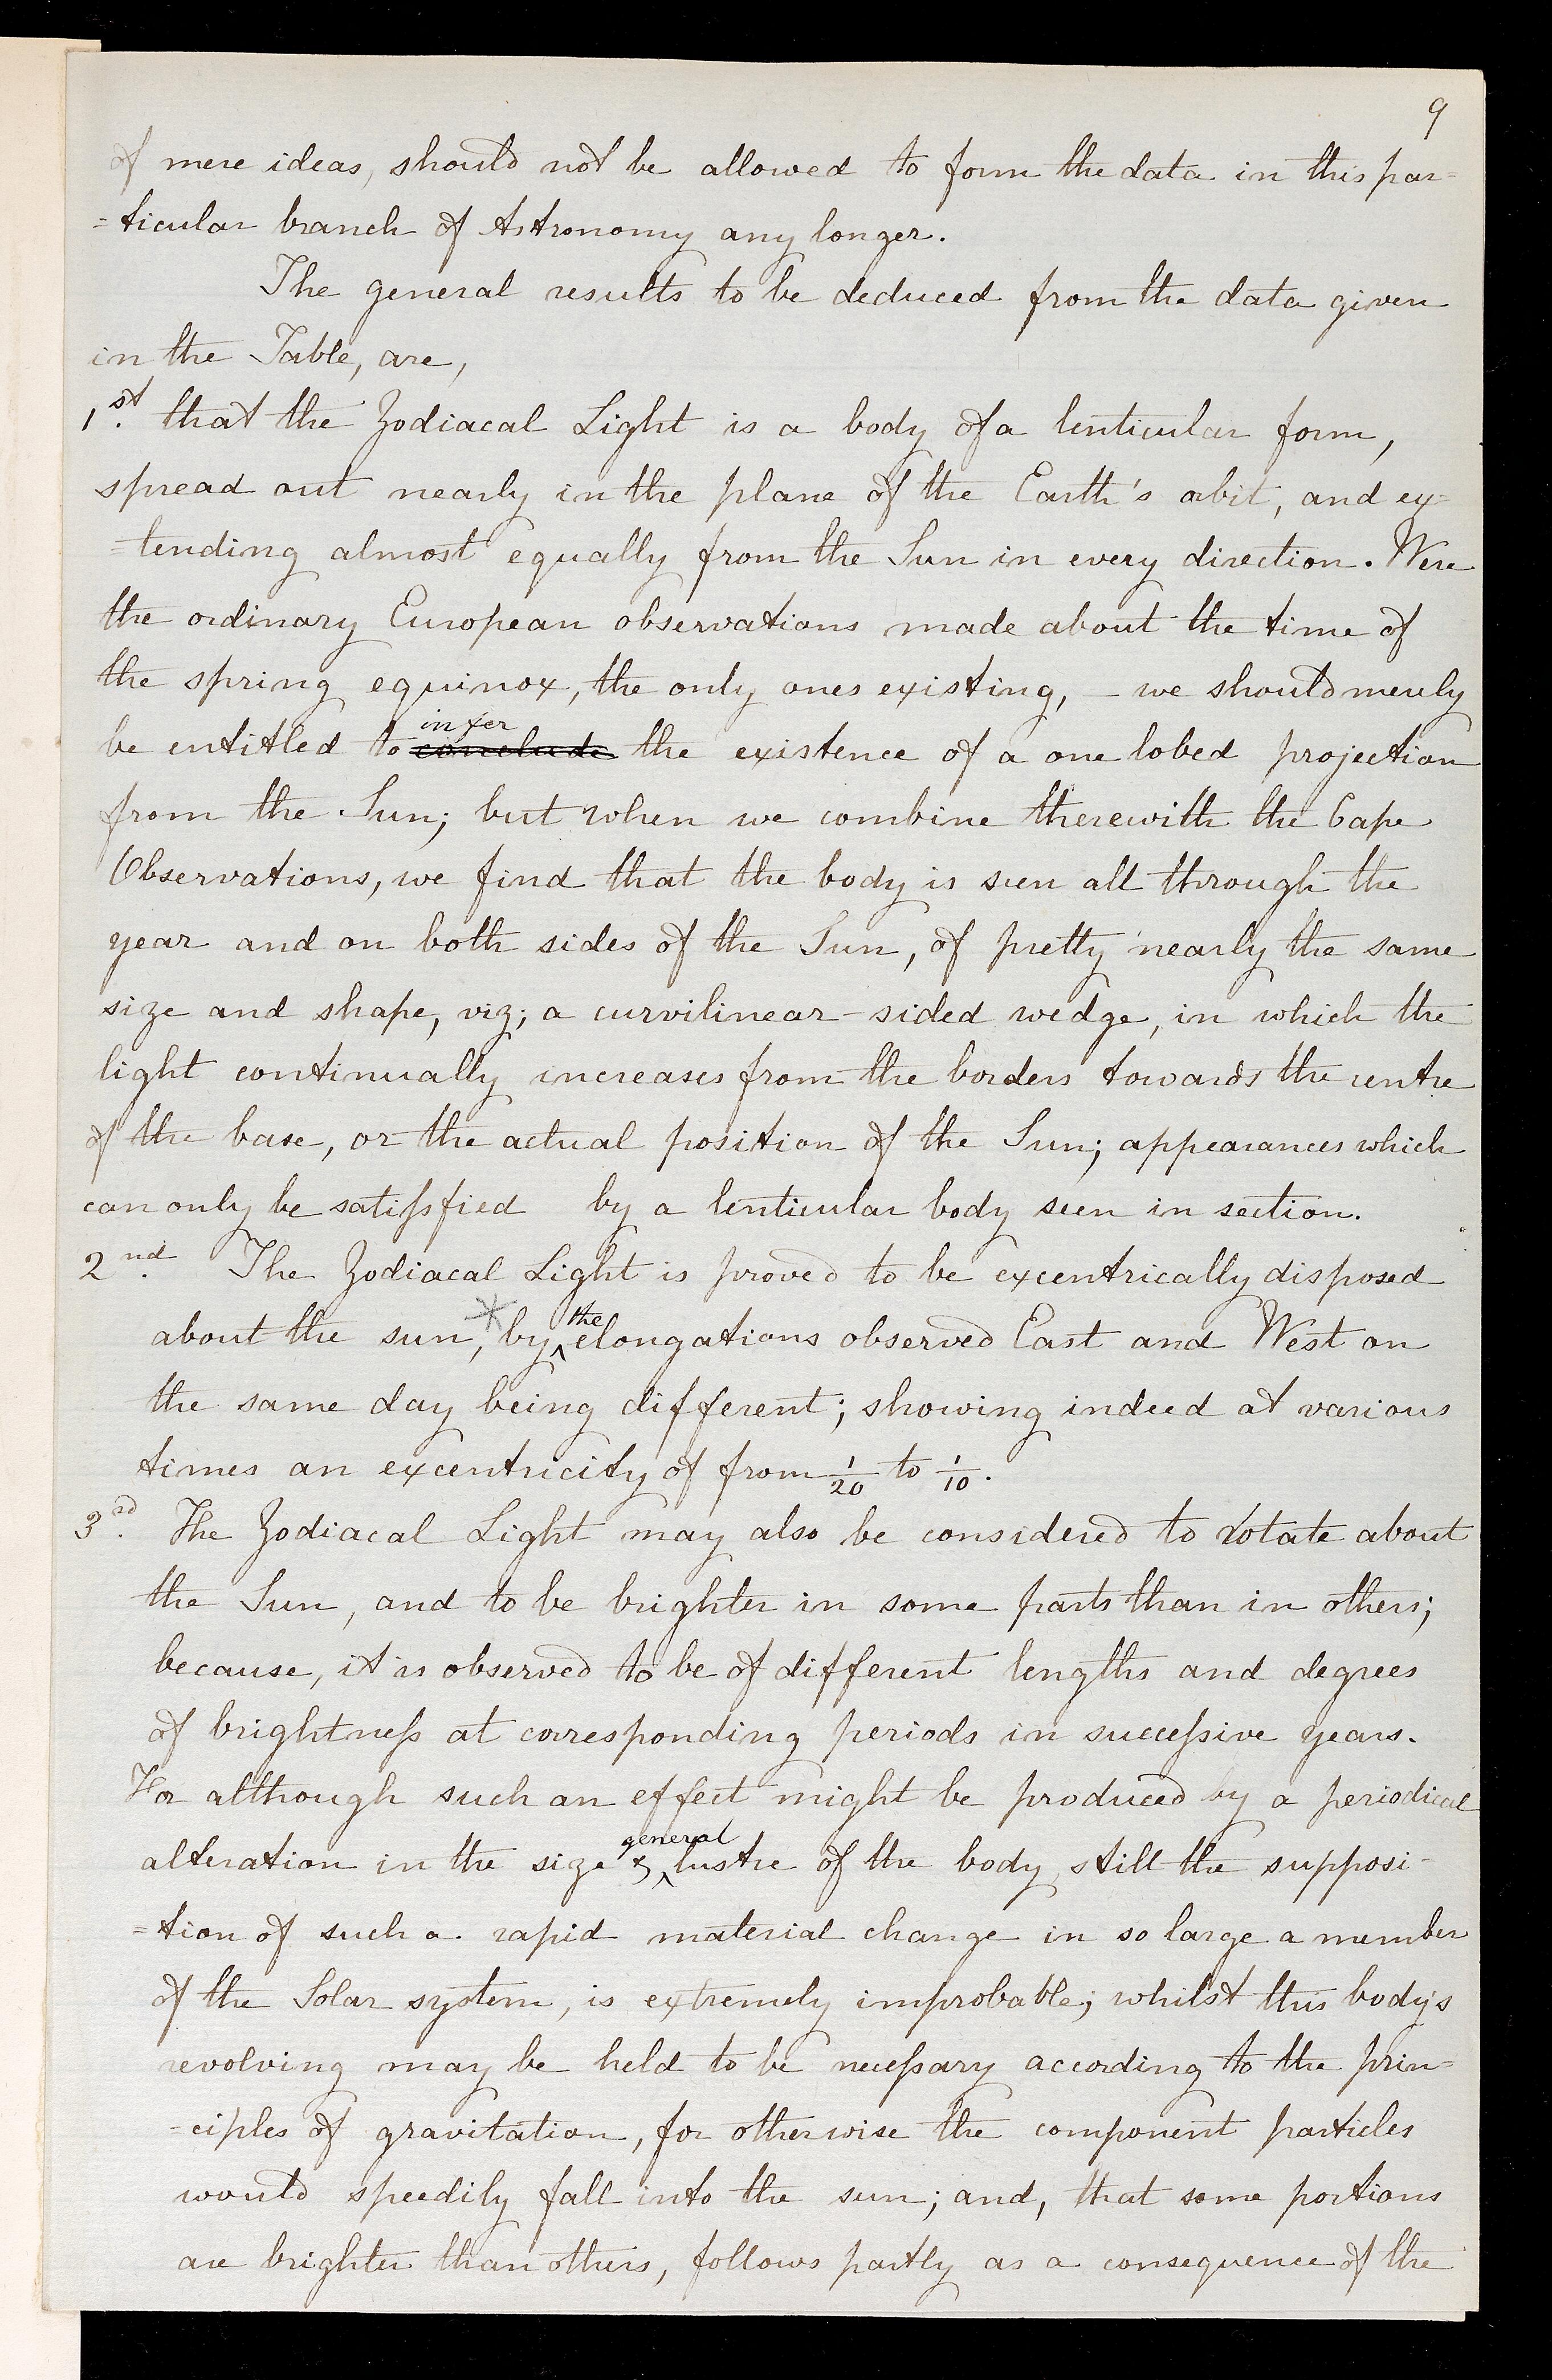 9
of mere ideas, should not be allowed to form the data in this par=
=ticular branch of Astronomy any longer.
The general results to be deduced from the data given
in the Table, are,
1st. that the Zodiacal Light is a body of a lenticular form,
spread out nearly in the plane of the Earth's orbit, and ex=
=tending almost equally from the Sun in every direction. Were
the ordinary European observations made about the time of
the spring equinox, the only ones existing, – we should merely
infer
be entitled to conclude the existence of a one lobed projection
from the Sun; but when we combine therewith the Cape
Observations, we find that the body is seen all through the
year and on both sides of the Sun, of pretty nearly the same
size and shape, viz; a curvilinear-sided wedge, in which the
light continually increases from the borders towards the centre
of the base, or the actual position of the Sun; appearances which
can only be satisfied by a lenticular body seen in section.
2nd. The Zodiacal Light is proved to be excentrically disposed
the
about the sun,* by ‸ elongations observed East and West on
the same day being different; showing indeed at various
times an excentricity of from 1/20 to 1/10.
3rd. The Zodiacal Light may also be considered to rotate about
the Sun, and to be brighter in some parts than in others;
because, it is observed to be of different lengths and degrees
of brightneſs at corresponding periods in succeſsive years.
For although such an effect might be produced by a periodical
general
alteration in the size & ‸ lustre of the body, still the supposi-
=tion of such a rapid material change in so large a member
of the Solar system, is extremely improbable; whilst this body's
revolving may be held to be neceſsary according to the prin=
=ciples of gravitation, for otherwise the component particles
would speedily fall into the sun; and, that some portions
are brighter than others, follows partly as a consequence of the